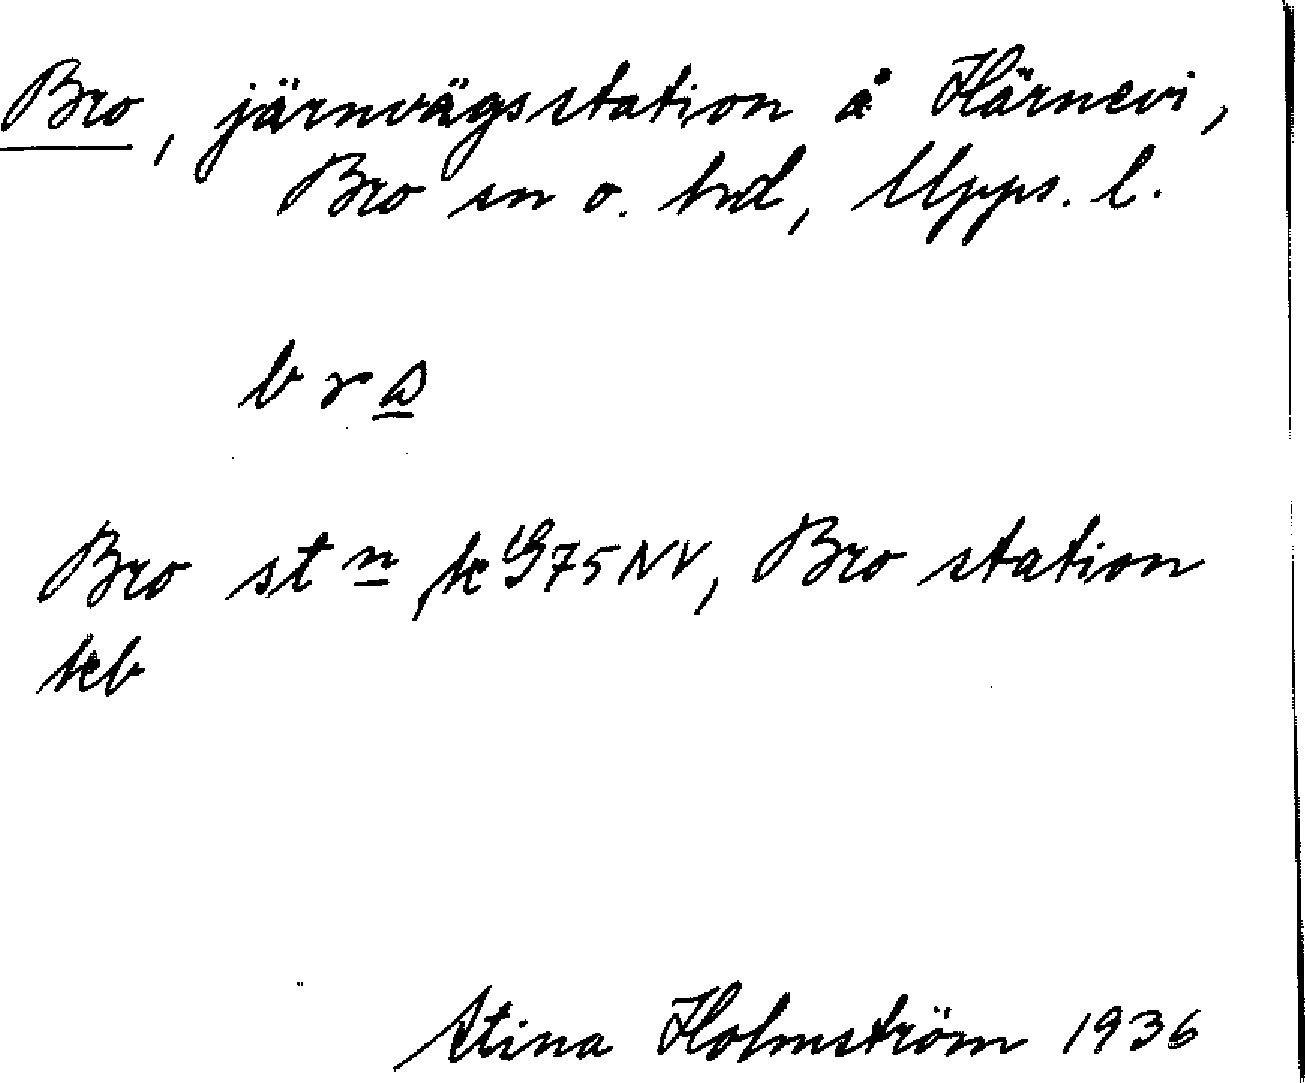 Bro, järnvägsstation å Härnevi,
Bro sn o. hd, Upps. l.
Bro st<u>n</u> k G75NV, Bro station
kb
Stina Holmström 1936